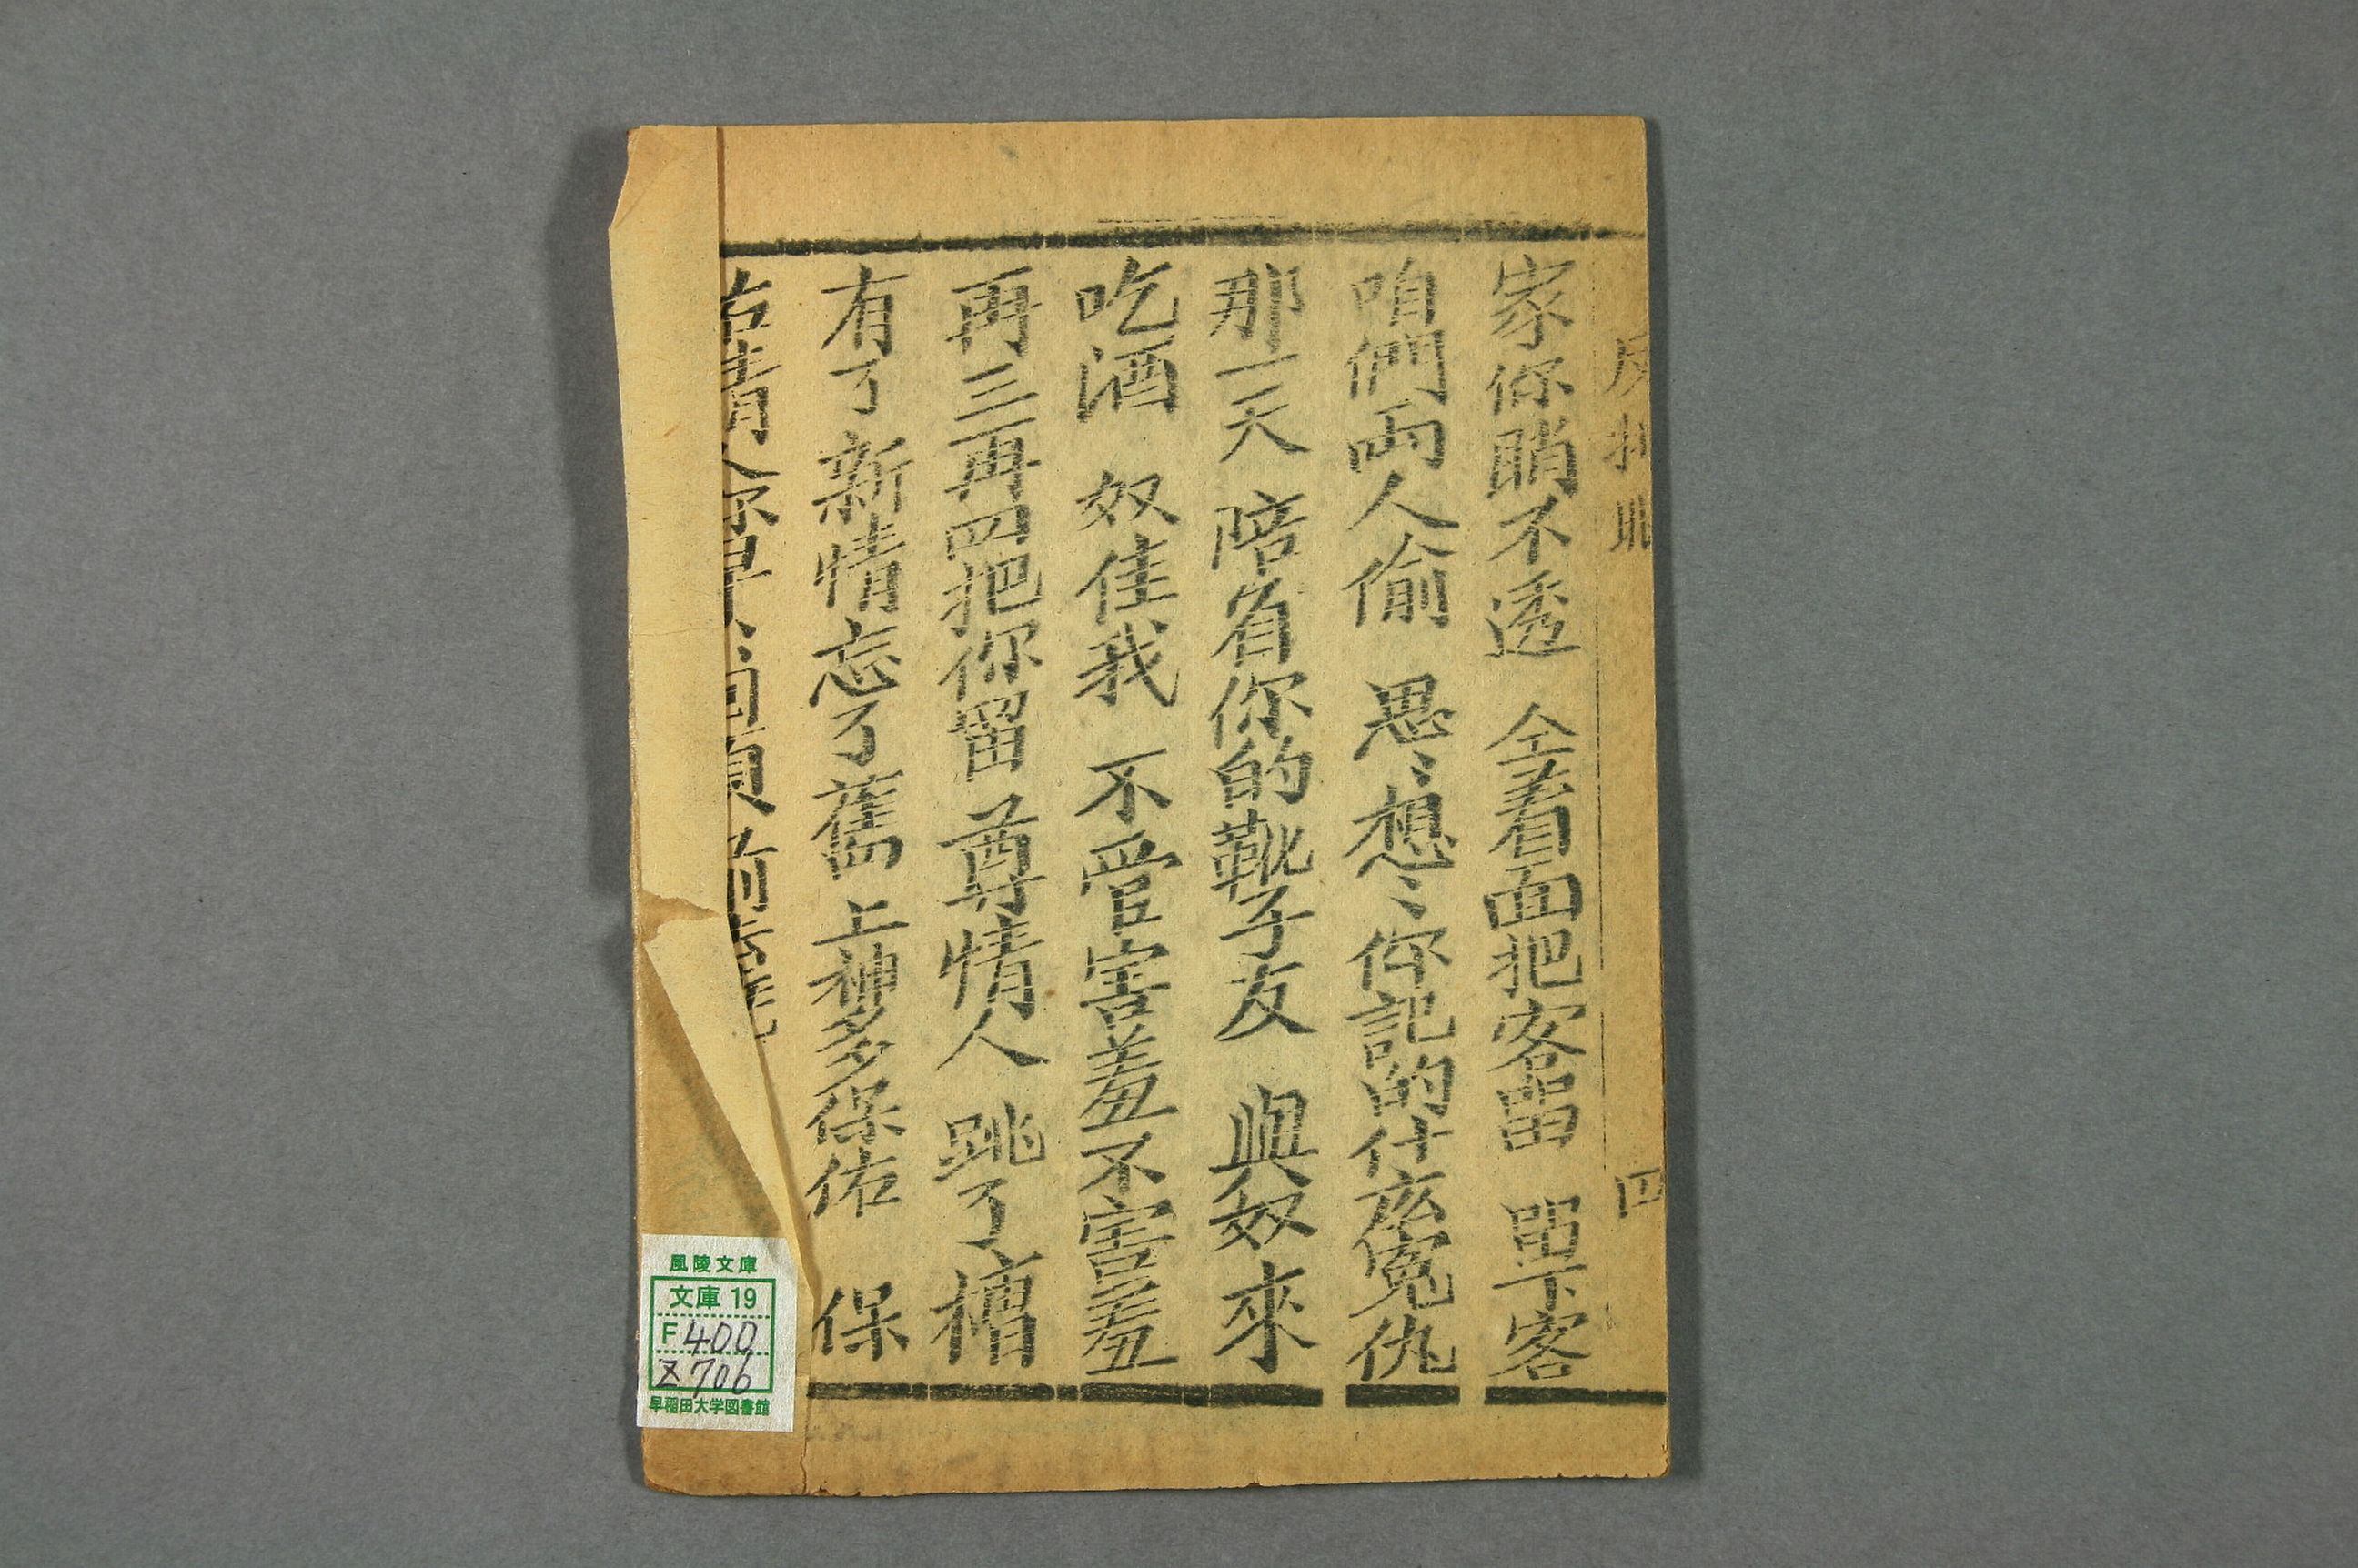 家你睄不透 全着面把客留 单下客
咱們兩人偷 思〻想〻你記的什庅寃仇
那一天 陪着你的靴子友 與奴來
吃酒 奴佳我 不管害羞不害羞
再三再四把你留 尊情人 跳了槽
有了新情忘了舊 上神多保佑 保
四
風陵文庫
文庫 19
F 400
Z 706
早稲田大学図書館